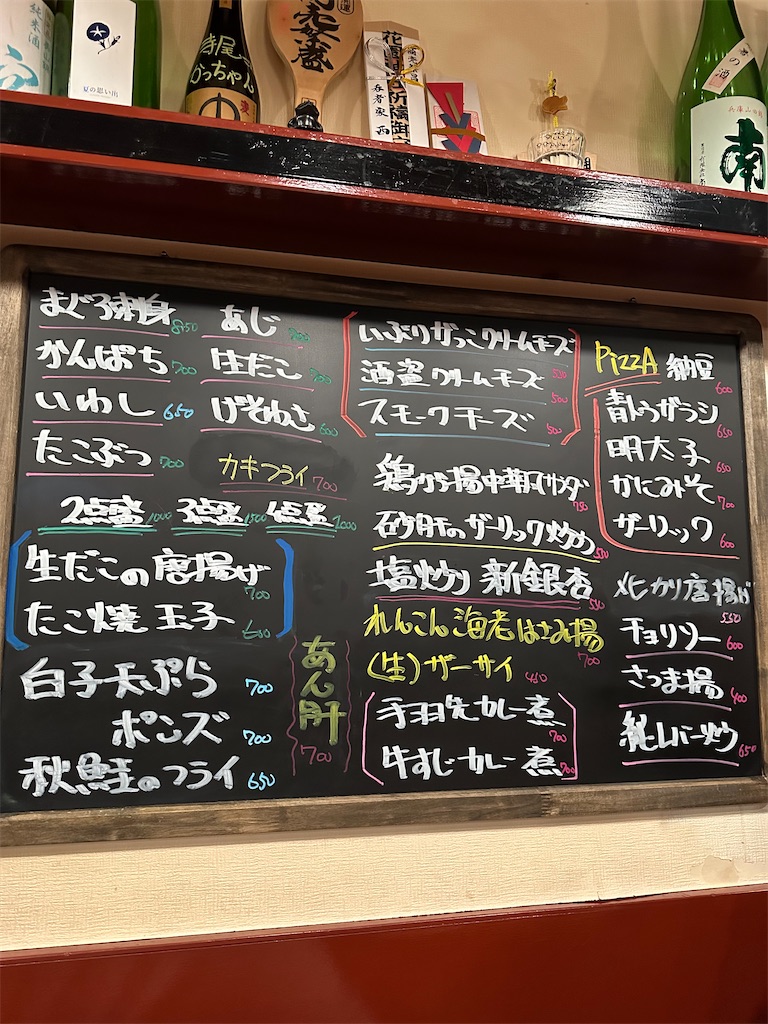 純米酒
夏の思い出
かっちゃん
呑者家 西
兵庫山田錦
南
まぐろ刺身 850
かんぱち 700
いわし 650
たこぶつ 700
あじ 700
生だこ 700
げそわさ 600
カキフライ 700
2点盛 1000 3点盛 1500 4点盛 2000
生だこの唐揚げ 700
たこ焼玉子 600
白子天ぷら 700
ポンズ 700
秋鮭のフライ 650
あん肝 700
いぶりがっこクリームチーズ 550
酒盗クリームチーズ 500
スモークチーズ 500
鶏から揚中華風サラダ 750
砂肝のガーリック炒め 550
塩炒り新銀杏 550
れんこん海老はさみ揚 700
(生)ザーサイ 450
手羽先カレー煮 700
牛すじカレー煮 700
PizzA 納豆 600
青トウガラシ 650
明太子 650
かにみそ 700
ガーリック 600
メヒカリ唐揚げ 550
チョリソー 600
さつま揚 400
純レバー炒 650